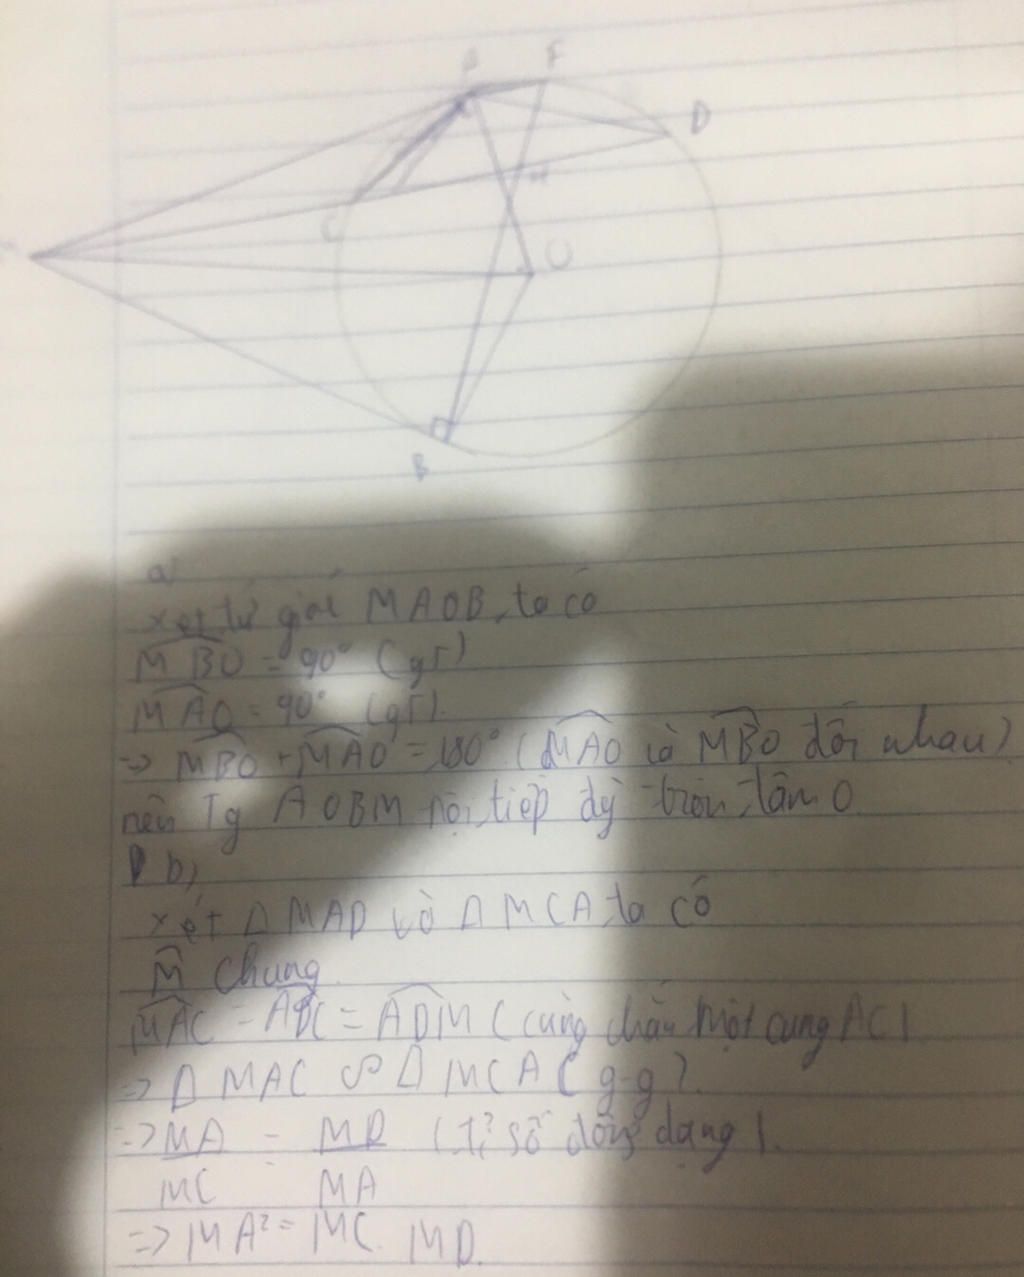 A
F
D
H
C
O
B
a)
xét tứ giác MAOB, ta có
MBO = 90° (gt)
MAO = 90° (gt).
=> MBO + MAO = 180° (MAO và MBO đối nhau)
nên Tg AOBM nội tiếp đg tròn tâm O
b)
xét Δ MAD và Δ MCA, ta có
M chung
MAC = ADC = ADM (cùng chắn một cung AC)
=> Δ MAC ∽ Δ MCA (g-g).
=> MA/MC = MD/MA (tỉ số đồng dạng).
=> MA² = MC. MD.